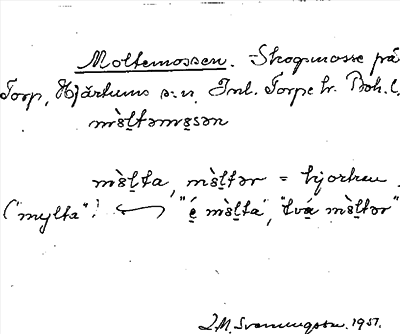 Moltemossen. Skogmosse på
Torp, Hjärtums s:n, Inl. Torpe hr. Boh. l.
mɔ̀l̠təmɔsən
mɔ̀l̠ta, mɔ̀l̠tər = hjortron
("mylta"? "é mɔ̀l̠ta", "två mɔ̀l̠tər"
Svenningson 1951.